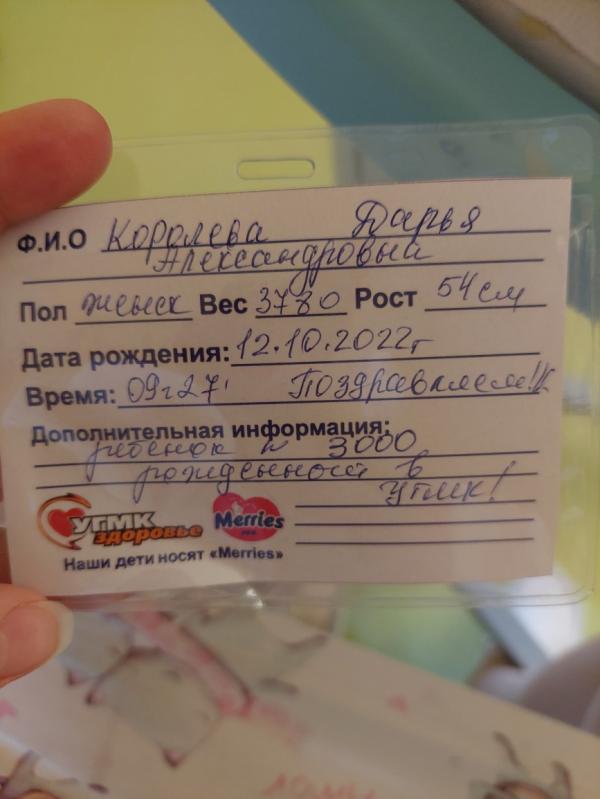 Ф.И.О Королева Дарья
Александровый
Пол женск Вес 3780 Рост 54 см
Дата рождения: 12.10.2022г
Время: 09ч27' Поздравляем!
Дополнительная информация:
ребенок № 3000
рожденный в
УГМК!
УГМК
здоровье
Merries
Наши дети носят «Merries»